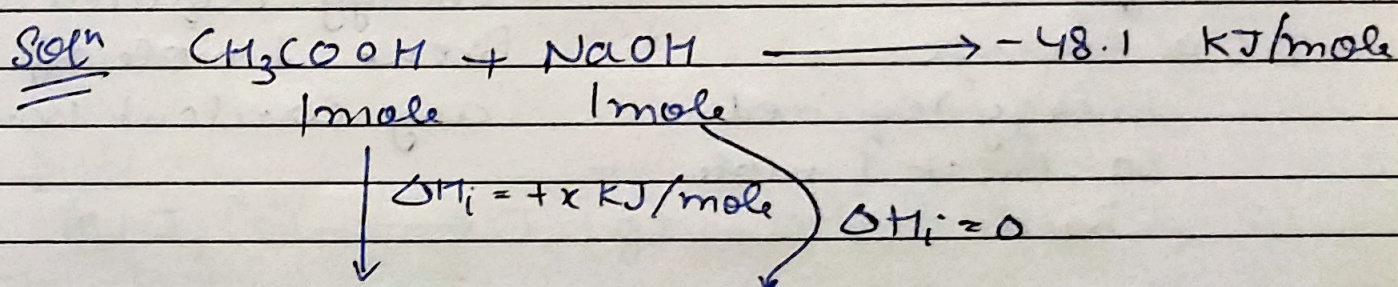 Solⁿ CH₃COOH + NaOH ⟶ -48.1 KJ/mole
1mole 1mole
ΔHᵢ = +x KJ/mole ΔHᵢ = 0